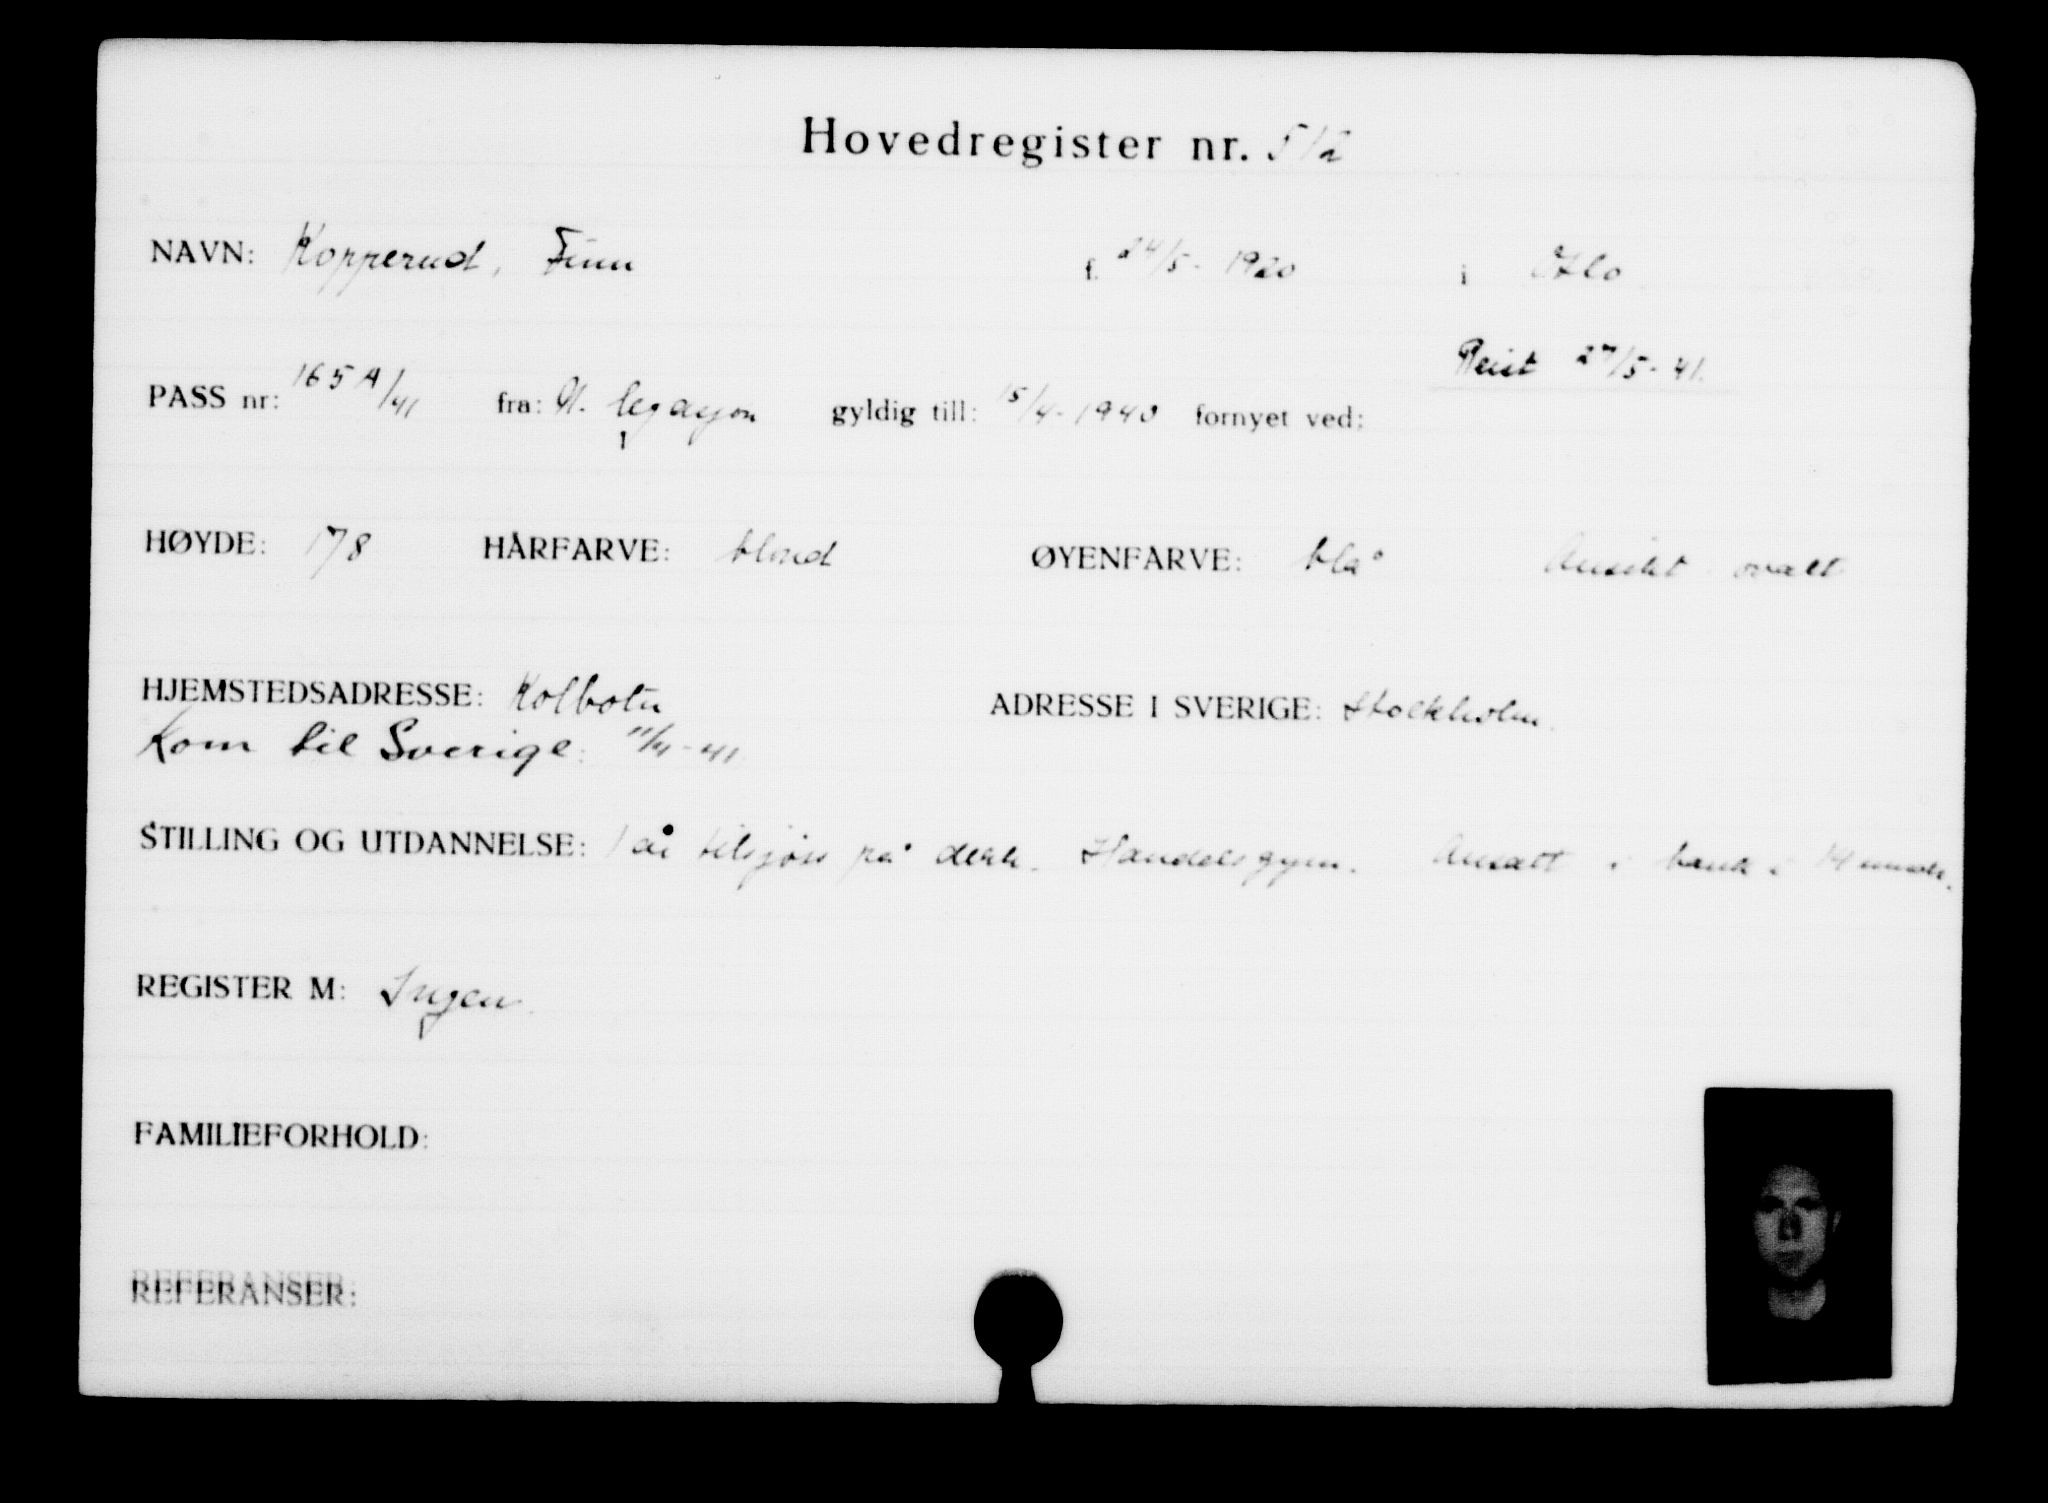 Hovedregister nr. 512
NAVN: Kopperud, Finn f. 24/5 - 1920 i Oslo
Reist 27/5 - 41.
PASS nr: 165 A/41 fra: N. legasjon gyldig till: 15/4 - 1940 fornyet ved:
HØYDE: 178 HÅRFARVE: blond ØYENFARVE: blå Ansikt ovalt
HJEMSTEDSADRESSE: Kolbotn ADRESSE I SVERIGE: Stockholm.
Kom til Sverige: 11/4 - 41
STILLING OG UTDANNELSE: 1 år tilsjøss på dekk. Handelsgym. Ansatt i bank i 14 mndr.
REGISTER M: Ingen.
FAMILIEFORHOLD:
REFERANSER: